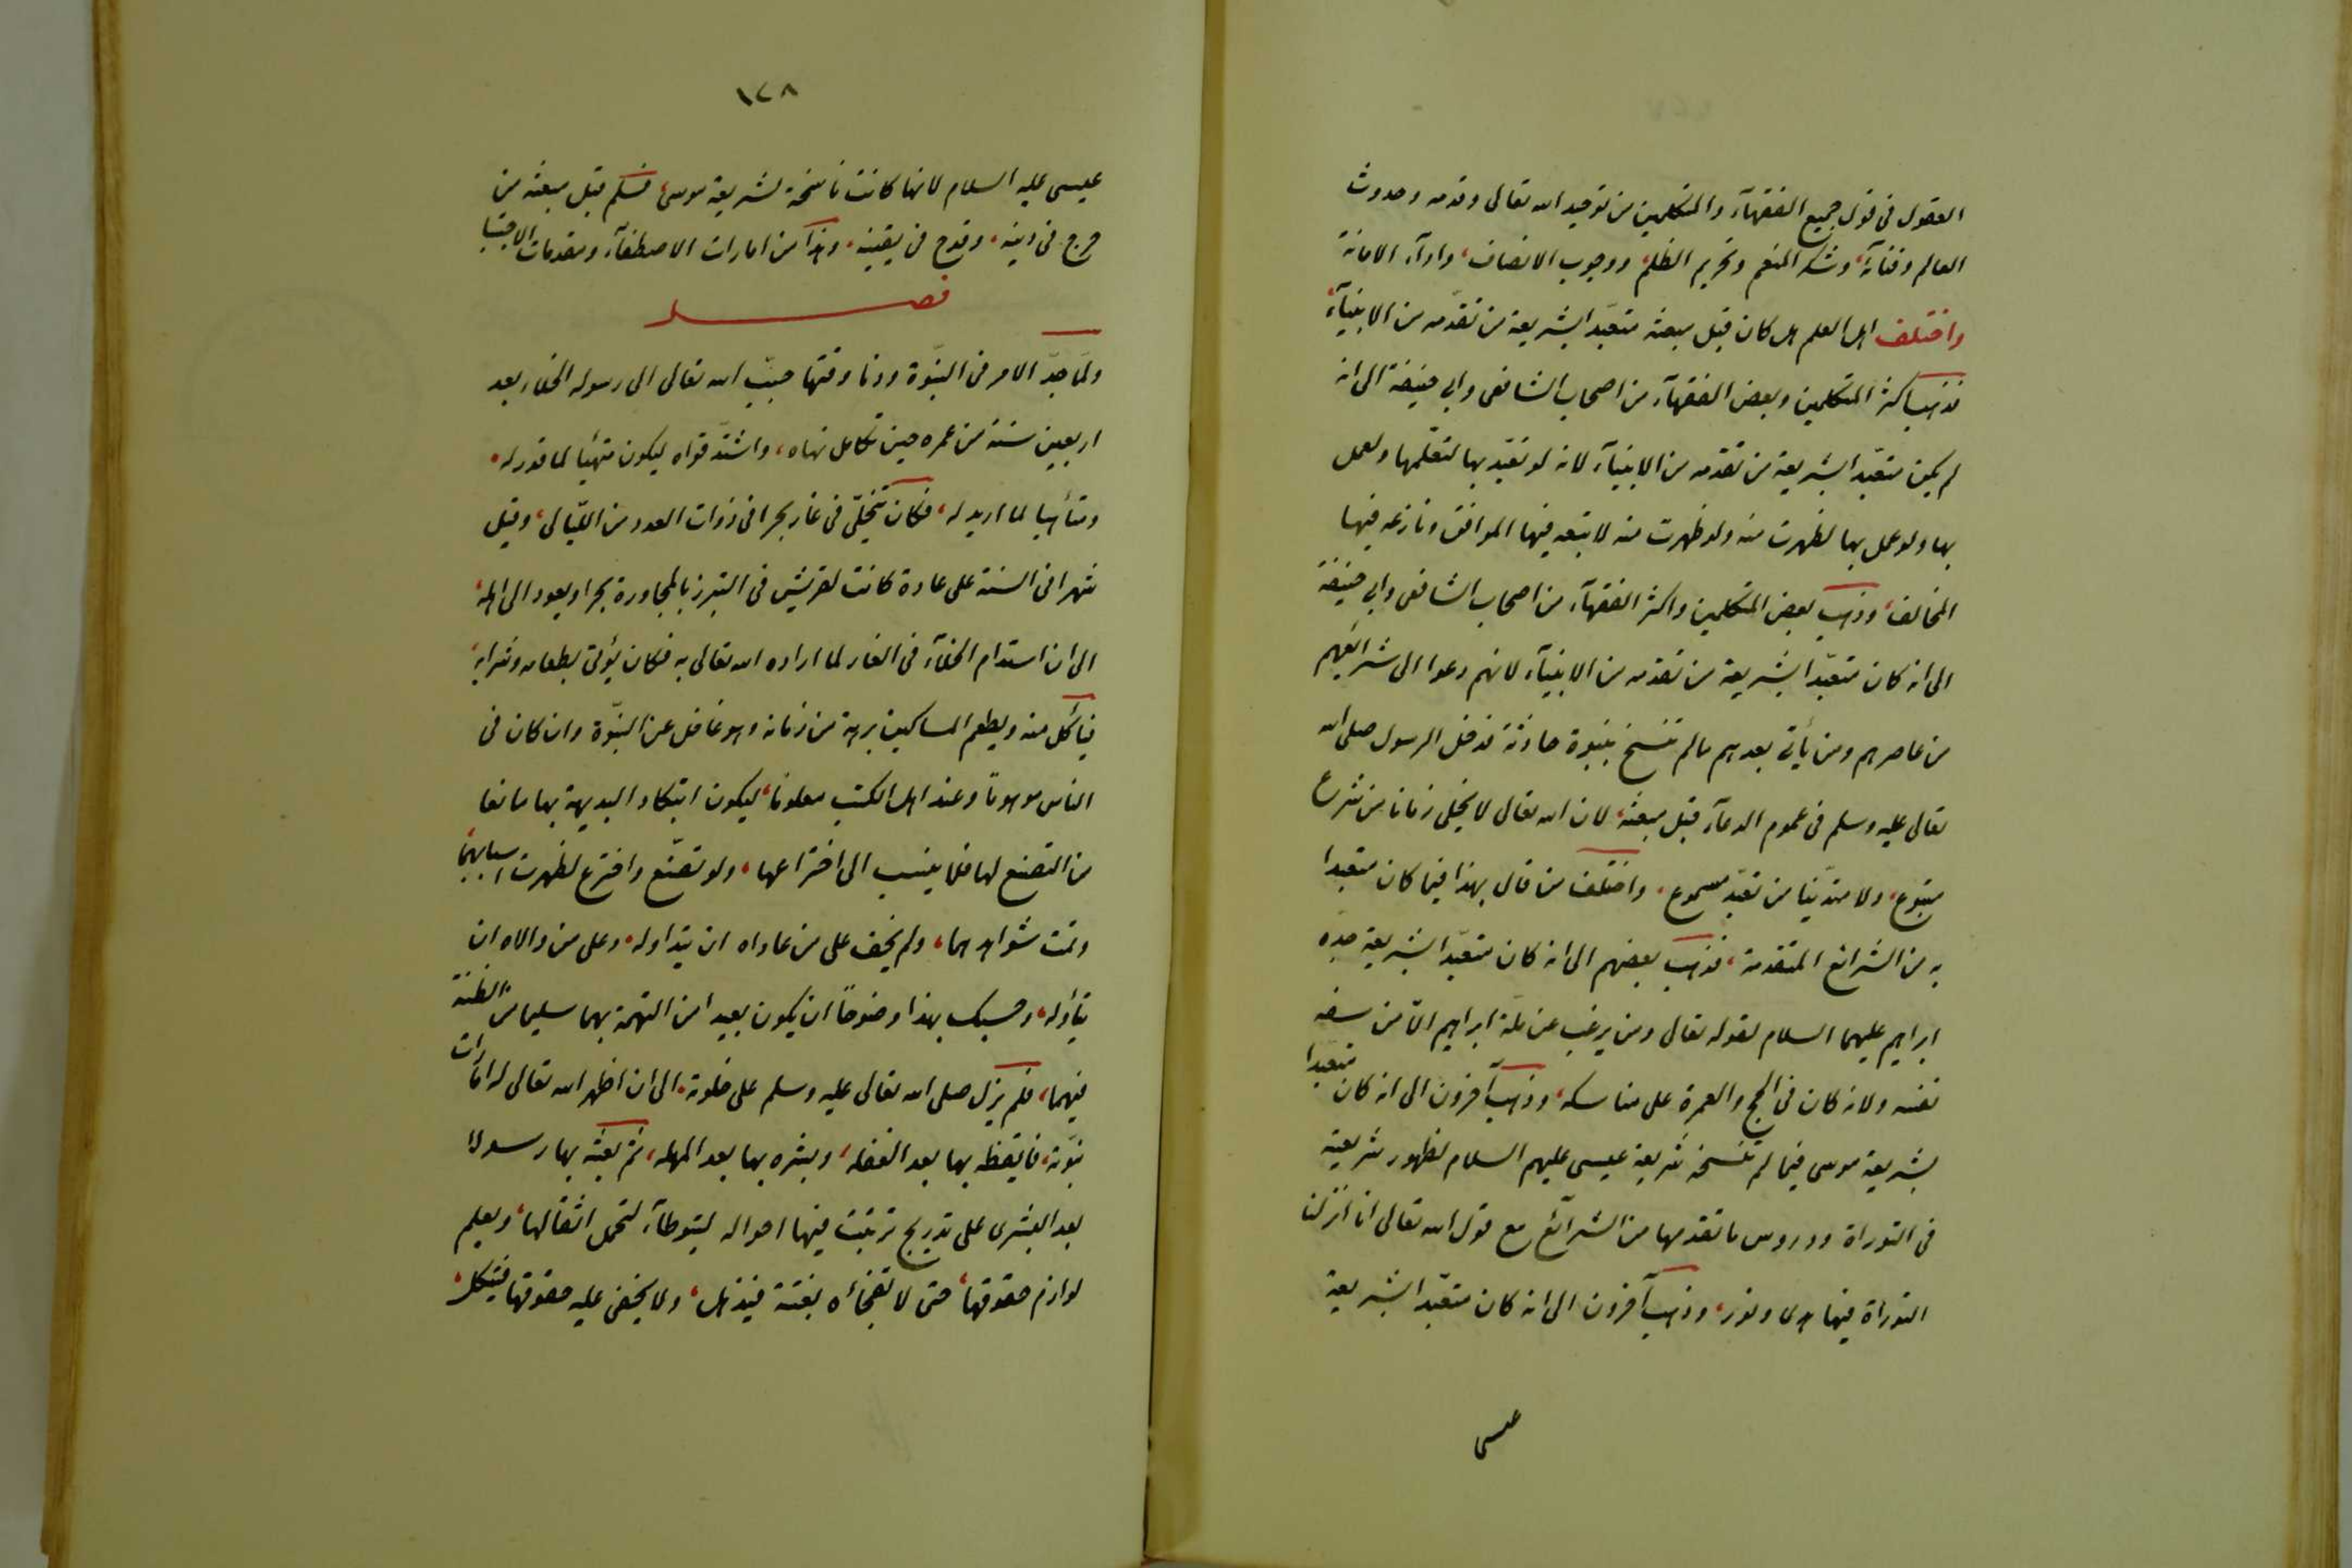 العقول فى قول جميع الفقهآء والمتكلمين من توحيد الله تعالى وقدمه وحدوث
العالم وفنائه، وشكر المنعم وتحريم الظلم، ووجوب الانصاف، وادآء الامانة
واختلف اهل العلم هل كان قبل مبعثه متعبّدا بشريعة من تقدّمه من الانبيآء،
فذهب اكثر المتكلمين وبعض الفقهآء من اصحاب الشافعى وابي حنيفة الى انه
لم يكن متعبّدا بشريعة من تقدمه من الانبيآء لانه لو تعبّد بها لتعلّمها ولعمل
بها ولو عمل بها لظهرت منه ولو ظهرت منه لاتبعه فيها الموافق ونازعه فيها
المخالف، وذهب بعض المتكلمين واكثر الفقهآء من اصحاب الشافعى وابي حنيفة
الى انه كان متعبّدا بشريعة من تقدمه من الانبيآء لانهم دعوا الى شرائعهم
من عاصرهم ومن يأتى بعدهم مالم تنسخ بنبوة حادثة فدخل الرسول صلى الله
تعالى عليه وسلم فى عموم الدعآء قبل مبعثه، لان الله تعالى لا يخلى زمانا من شرع
متبوع، ولا متديّنا من تعبّد مسموع، واختلف من قال بهذا فيما كان متعبدا
به من الشرائع المتقدمة، فذهب بعضهم الى انه كان متعبّدا بشريعة جدّه
ابراهيم عليهما السلام لقوله تعالى ومن يرغب عن ملّة ابراهيم الّا من سفه
نفسه ولانه كان فى الحج والعمرة على مناسكه، وذهب آخرون الى انه كان متعبّدا
بشريعة موسى فيما لم تنسخه شريعة عيسى عليهم السلام لظهور شريعته
فى التوراة ودروس ما تقدمها من الشرآئع مع قول الله تعالى انا انزلنا
التوراة فيها هدى ونور، وذهب آخرون الى انه كان متعبّدا بشريعة
عيسى
١٢٨
عيسى عليه السلام لانها كانت ناسخة لشريعة موسى، فسلم قبل مبعثه من
جرح فى دينه، وقدح فى يقينه، وهذا من امارات الاصطفآء ومقدمات الاجتبا
فصل
ولمّا جدّ الامر فى النبوّة ودنا وقتها حبّب الله تعالى الى رسوله الخلاء بعد
اربعين سنة من عمره حين تكامل نهاه، واشتدّ قواه ليكون متهيّا لما قدر له،
ومتأهبا لما اريد له، فكان يتخلّى فى غار بحرا فى ذوات العدد من الليالى، وقيل
شهرا فى السنة على عادة كانت لقريش فى التبرز بالمجاورة بحرا ويعود الى اهله،
الى ان استدام الخلآء فى الغار لما اراده الله تعالى به فكان يؤتى بطعامه وشرابه،
فيأكل منه ويطعم المساكين برهة من زمانه وهو غافل عن النبوّة وان كان فى
الناس موهوما وعند اهل الكتب معلوما، ليكون ابتكار البديهة بها مانعا
من التصنع لها فلما ينسب الى اختراعها، ولو تصنّع واخترع لظهرت اسبابهما،
ونمت شواهدهما، ولم يخف على من عاداه ان يتداوله، وعلى من والاه ان
يتأوله، وحسبك بهذا وضوحاً ان يكون بعيدا من التهمة بهما سليما من الظنة
فيهما، فلم يزل صلى الله تعالى عليه وسلم على خلوته، الى ان اظهر الله تعالى له امارات
نبوّته، فايقظه بها بعد الغفلة، وبشره بها بعد المهلة، ثم بعثه بها رسولا
بعد البشرى على تدريج ترتبت فيها احواله ليتوطآء لتحمل اثقالها، ويعلم
لوازم حقوقها، حتى لا تفجأه بغتة فيذهل، ولا يخفى عليه حقوقها فينكل،